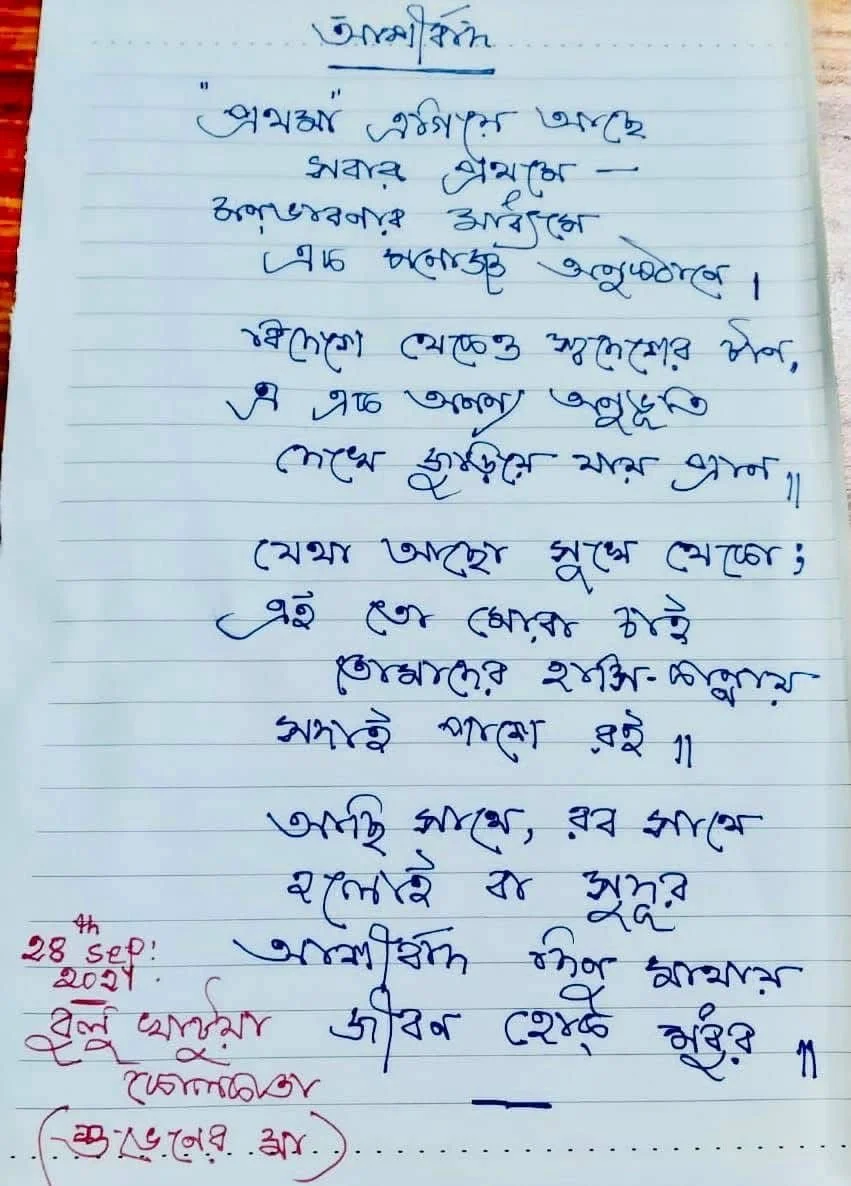 আশীর্বাদ
"প্রথমা" এগিয়ে আছে
সবার প্রথমে —
শুভভাবনার মাধ্যমে
এক মনোজ্ঞ অনুষ্ঠানে।
বিদেশে থেকেও স্বদেশের টান,
এ এক অনন্য অনুভূতি
দেখে জুড়িয়ে যায় প্রাণ॥
যেথা আছো সুখে থেকো;
এই তো মোরা চাই
তোমাদের হাসি-কান্নায়
সদাই পাশে রই॥
আছি সাথে, রব সাথে
হলোই বা সুদূর
আশীর্বাদ দিনু মাথায়
জীবন হোক্ মধুর॥
28th Sep: 2021.
বুলু খাটুয়া
কোলকাতা
(শুভেনের মা)